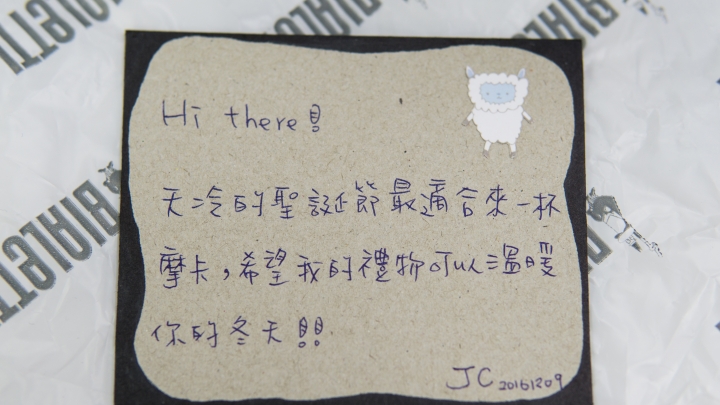 BIALETTI
BIALETTI
Hi there!
天冷的聖誕節最適合來一杯
摩卡,希望我的禮物可以溫暖
你的冬天!!
JC 20161209
BIALETTI